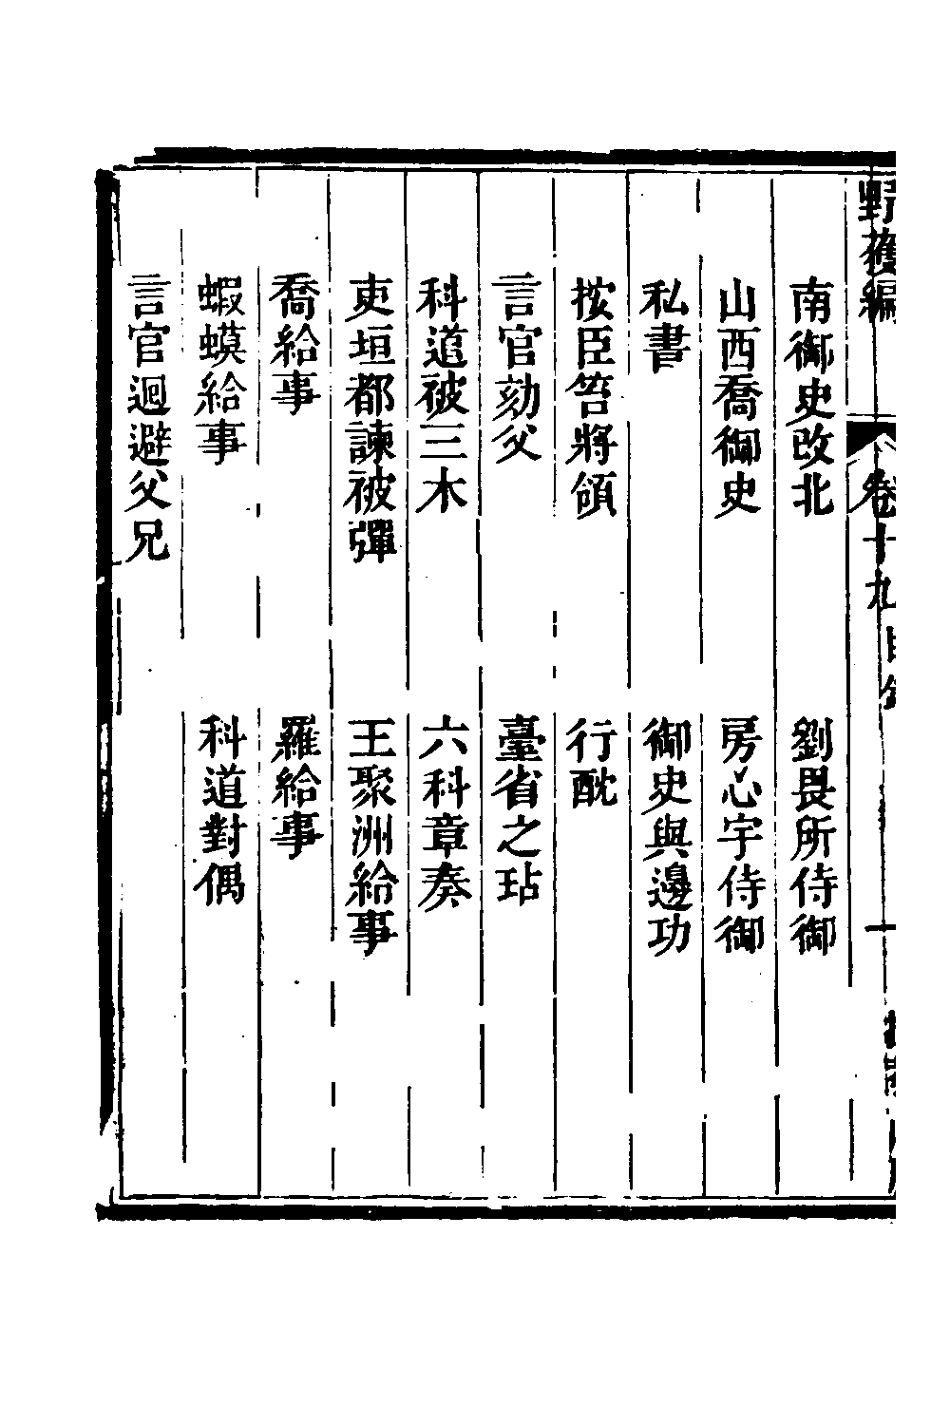 野獲編 卷十九 目錄 一
南御史改北 劉畏所侍御
山西喬御史 房心宇侍御
私書 御史與邊功
按臣笞將領 行酖
言官劾父 臺省之玷
科道被三木 六科章奏
吏垣都諫被彈 王聚洲給事
喬給事 羅給事
蝦蟆給事 科道對偶
言官迴避父兄